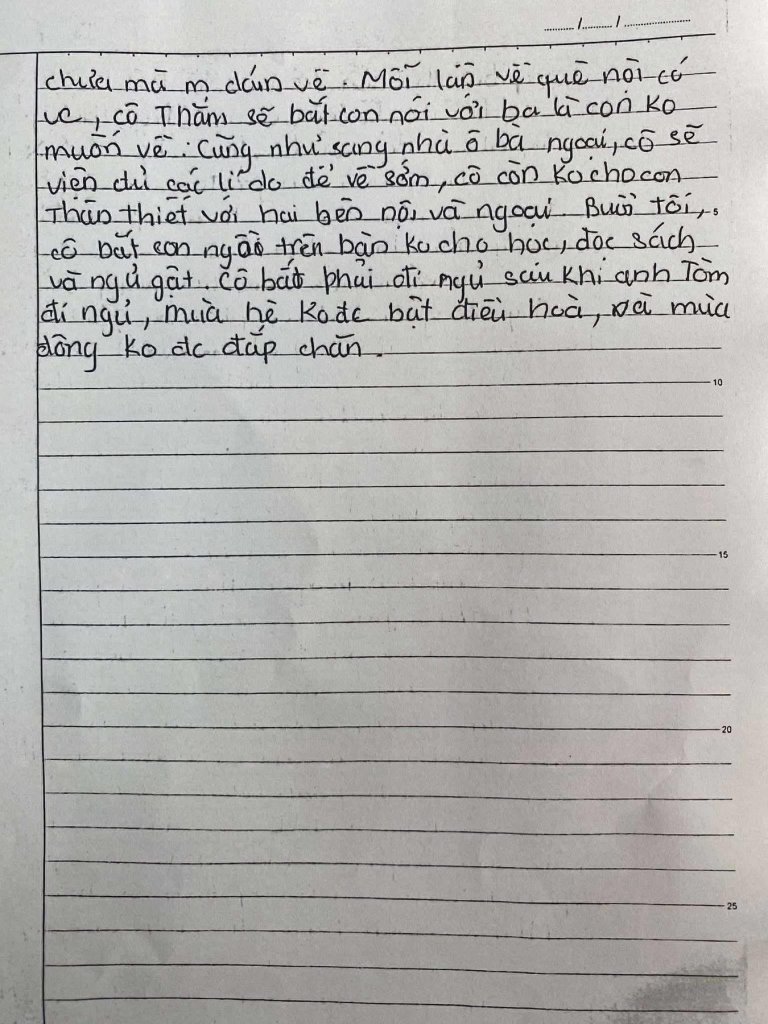 ...... /...... / ............
chưa mà m dám về. Mỗi lần về quê nội có
vc, cô Thắm sẽ bắt con nói với ba là con ko
muốn về. Cũng như sang nhà ô bà ngoại, cô sẽ
viện đủ các lí do để về sớm, cô còn ko cho con
thân thiết với hai bên nội và ngoại. Buổi tối,
cô bắt con ngồi trên bàn ko cho học, đọc sách
và ngủ gật. Cô bắt phải đi ngủ sau khi anh Tôm
đi ngủ, mùa hè ko đc bật điều hoà, và mùa
đông ko đc đắp chăn.
10
15
20
25